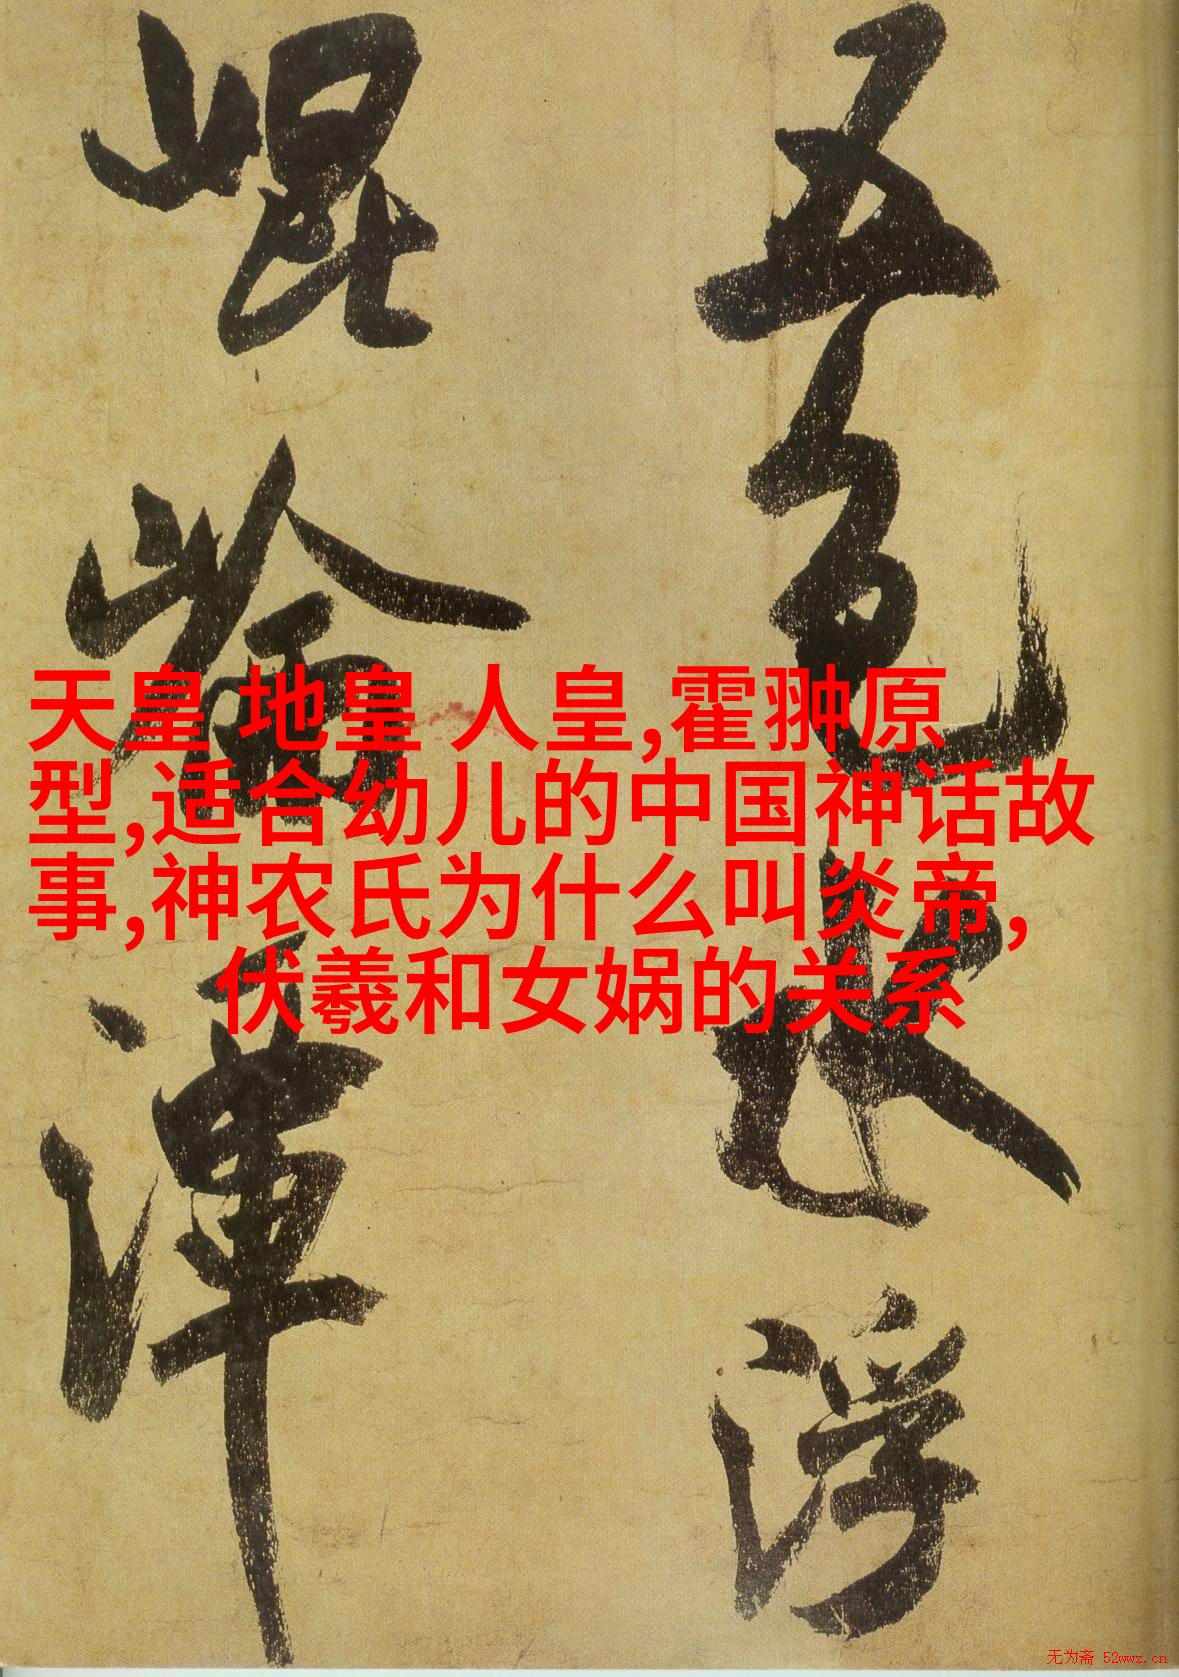 五色水浮
崐崘潭
天皇 地皇 人皇,霍翀原
型,适合幼儿的中国神话故
事,神农氏为什么叫炎帝,
伏羲和女娲的关系
无为斋 52wwz.cn